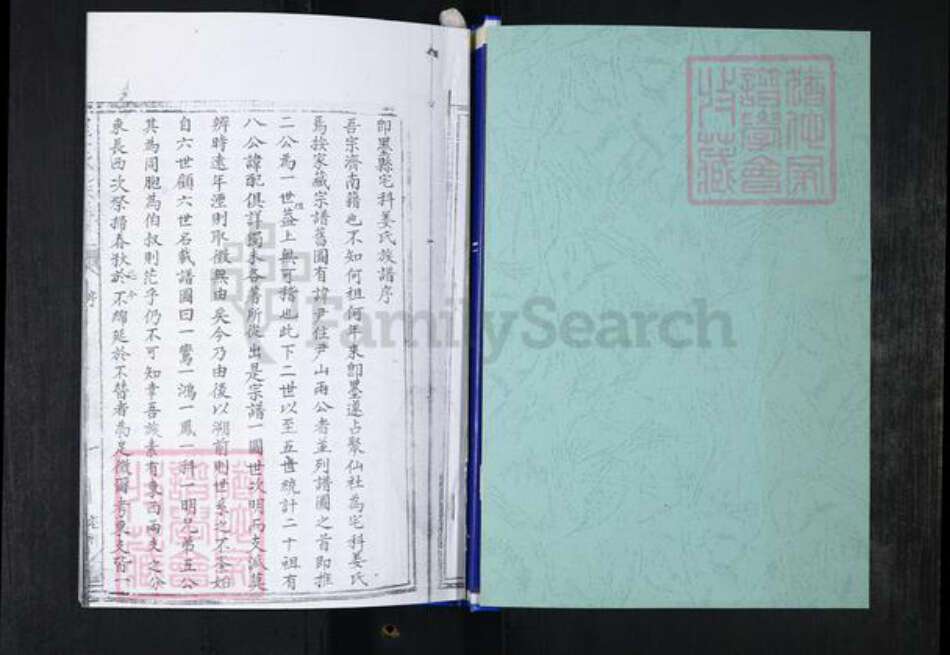 即墨縣宅科姜氏族譜序
吾宗濟南籍也不知何祖何年來即墨遂占聚仙社為宅科姜氏
焉按家藏宗譜舊圖有諱尹住尹山兩公者並列譜圖之首即推
二公為一世祖蓋上無可稽也此下二世以至五世統計二十祖有
八公諱配俱詳獨未各著所從出是宗譜一圖世次明而支派莫
辨時遠年湮則取徵無由矣今乃由後以溯前則世系之不荃始
自六世顧六世名載譜圖曰一鸞一鴻一鳳一科一明兄弟五公
其為同胞為伯叔則茫乎仍不可知幸吾族素有東西兩支之分
東長西次祭掃春秋於不綿延於不替者為足徵爾考東支皆一
序
一
濟仙家譜學會收藏
FamilySearch